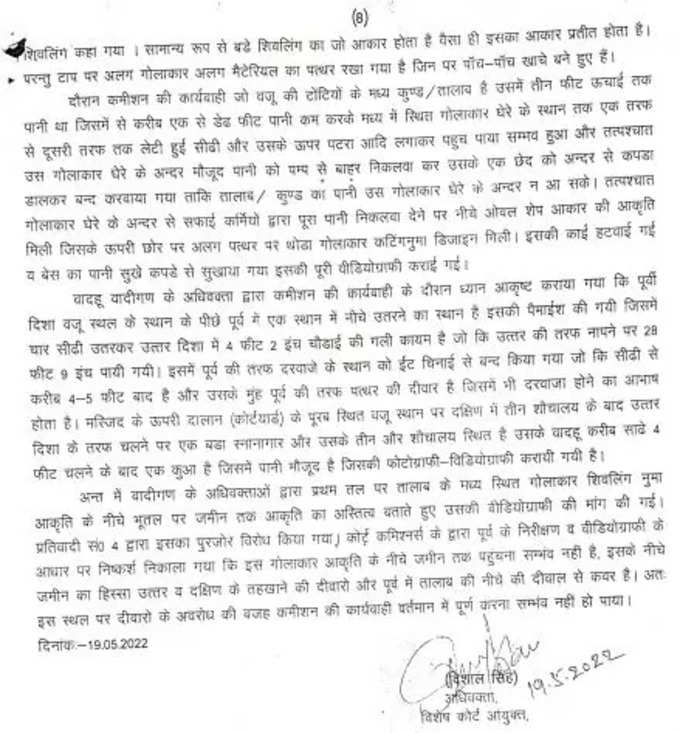 (8)
शिवलिंग कहा गया । सामान्य रूप से बडे शिवलिंग का जो आकार होता है वैसा ही इसका आकार प्रतीत होता है।
परन्तु टाप पर अलग गोलाकार अलग मैटेरियल का पत्थर रखा गया है जिन पर पॉच–पॉच खाचे बने हुए हैं।
दौरान कमीशन की कार्यवाही जो वजू की टोंटियों के मध्य कुण्ड/तालाब है उसमें तीन फीट ऊचाई तक
पानी था जिसमें से करीब एक से डेढ फीट पानी कम करके मध्य में स्थित गोलाकार घेरे के स्थान तक एक तरफ
से दूसरी तरफ तक लेटी हुई सीढी और उसके ऊपर पटरा आदि लगाकर पहुच पाया सम्भव हुआ और तत्पश्चात
उस गोलाकार घेरे के अन्दर मौजूद पानी को पम्प से बाहर निकलवा कर उसके एक छेद को अन्दर से कपडा
डालकर बन्द करवाया गया ताकि तालाब/ कुण्ड का पानी उस गोलाकार घेरे के अन्दर न आ सके। तत्पश्चात
गोलाकार घेरे के अन्दर से सफाई कर्मियों द्वारा पूरा पानी निकलवा देने पर नीचे ओवल शेप आकार की आकृति
मिली जिसके ऊपरी छोर पर अलग पत्थर पर थोडा गोलाकार कटिंगनुमा डिजाइन मिली। इसकी काई हटवाई गई
व बेस का पानी सुखे कपडे से सुखाया गया इसकी पूरी वीडियोग्राफी कराई गई।
वादहू वादीगण के अधिवक्ता द्वारा कमीशन की कार्यवाही के दौरान ध्यान आकृष्ट कराया गया कि पूर्वी
दिशा वजू स्थल के स्थान के पीछे पूर्व में एक स्थान में नीचे उतरने का स्थान है इसकी पैमाईश की गयी जिसमें
चार सीढी उतरकर उत्तर दिशा में 4 फीट 2 इंच चौडाई की गली कायम है जो कि उत्तर की तरफ नापने पर 28
फीट 9 इंच पायी गयी। इसमें पूर्व की तरफ दरवाजे के स्थान को ईट चिनाई से बन्द किया गया जो कि सीढी से
करीब 4–5 फीट बाद है और उसके मुंह पूर्व की तरफ पत्थर की दीवार है जिसमें भी दरवाजा होने का आभाष
होता है। मस्जिद के ऊपरी दालान (कोर्टयार्ड) के पूरब स्थित वजू स्थान पर दक्षिण में तीन शौचालय के बाद उत्तर
दिशा के तरफ चलने पर एक बडा स्नानागार और उसके तीन और शौचालय स्थित है उसके वादहू करीब साढे 4
फीट चलने के बाद एक कुआ है जिसमें पानी मौजूद है जिसकी फोटोग्राफी–विडियोग्राफी करायी गयी है।
अन्त में वादीगण के अधिवक्ताओं द्वारा प्रथम तल पर तालाब के मध्य स्थित गोलाकार शिवलिंग नुमा
आकृति के नीचे भूतल पर जमीन तक आकृति का अस्तित्व बताते हुए उसकी वीडियोग्राफी की मांग की गई।
प्रतिवादी सं0 4 द्वारा इसका पुरजोर विरोध किया गया। कोर्ट कमिश्नर्स के द्वारा पूर्व के निरीक्षण व वीडियोग्राफी के
आधार पर निष्कर्श निकाला गया कि इस गोलाकार आकृति के नीचे जमीन तक पहुचना सम्भंव नही है, इसके नीचे
जमीन का हिस्सा उत्तर व दक्षिण के तहखाने की दीवारो और पूर्व में तालाब की नीचे की दीवाल से कवर है। अतः
इस स्थल पर दीवारो के अवरोध की वजह कमीशन की कार्यवाही वर्तमान में पूर्ण करना सम्भंव नहीं हो पाया।
दिनांक:–19.05.2022
(विशाल सिंह)
19.5.2022
अधिवक्ता,
विशेष कोर्ट आयुक्त,